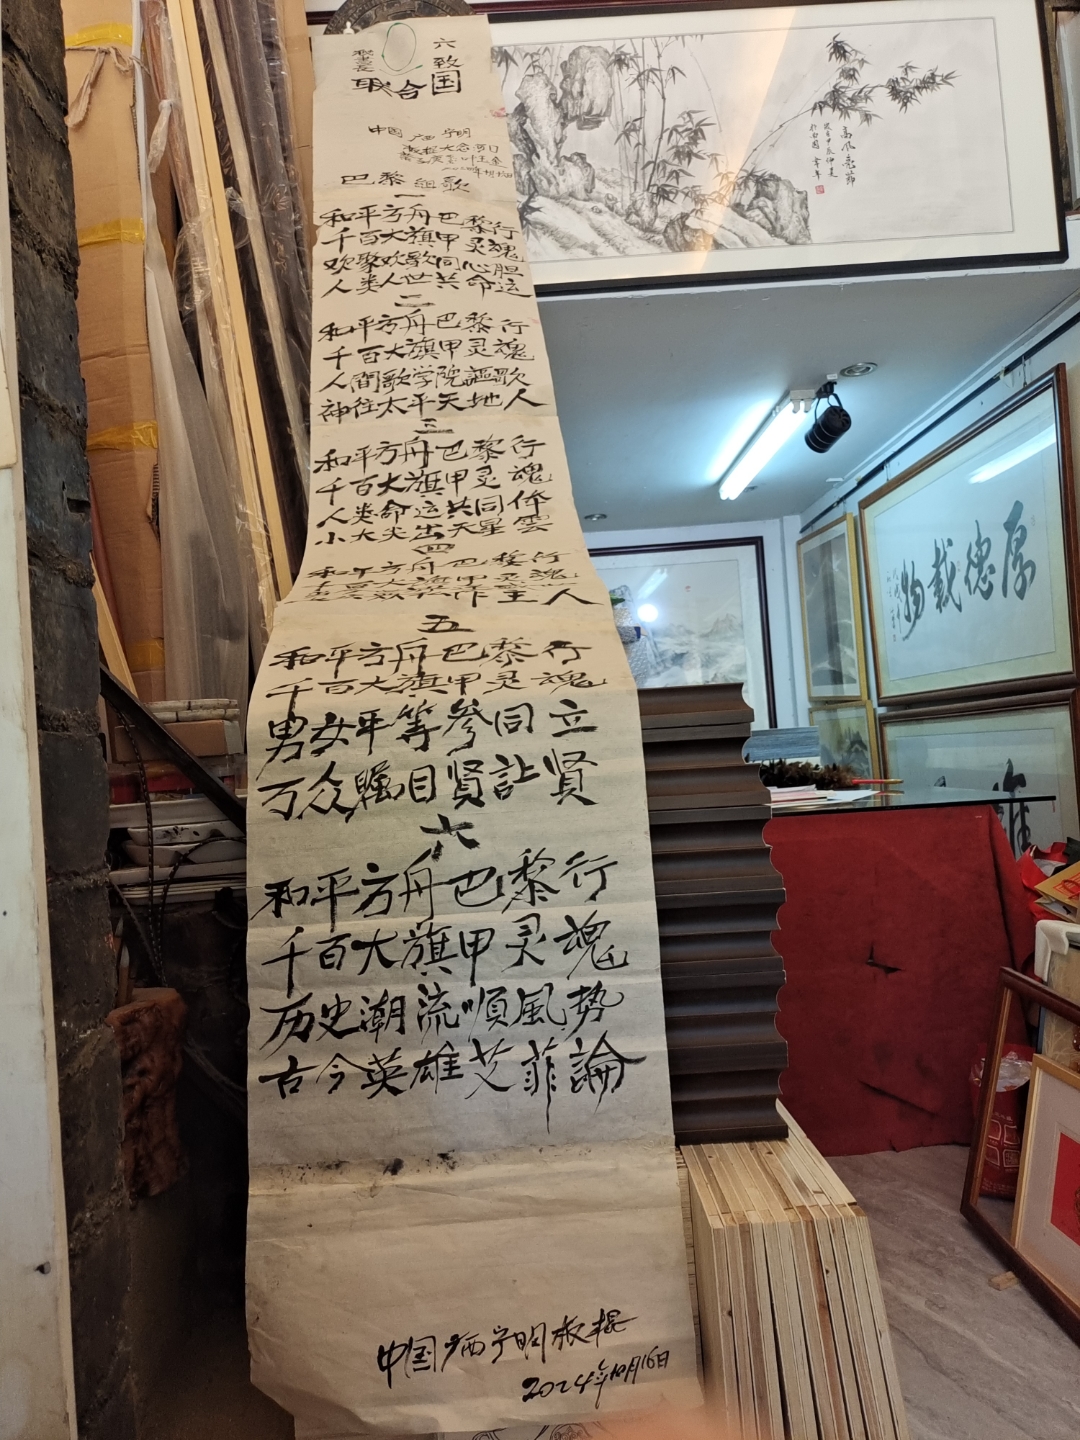 六致
联合国
中国广西宁明
巴黎组歌
一
和平方舟巴黎行
千百大旗甲灵魂
欢聚欢歌同心胆
人类人世共命运
二
和平方舟巴黎行
千百大旗甲灵魂
人間歌学院謳歌
神往太平天地人
三
和平方舟巴黎行
千百大旗甲灵魂
人类命运共同体
小大火出天星雲
四
和平方舟巴黎行
千百大旗甲灵魂
作主人
五
和平方舟巴黎行
千百大旗甲灵魂
男女平等参同立
万众瞩目贤让贤
六
和平方舟巴黎行
千百大旗甲灵魂
历史潮流順風势
古今英雄芝菲論
中国广西宁明板棍
2024年10月16日
高风亮节
厚德载物